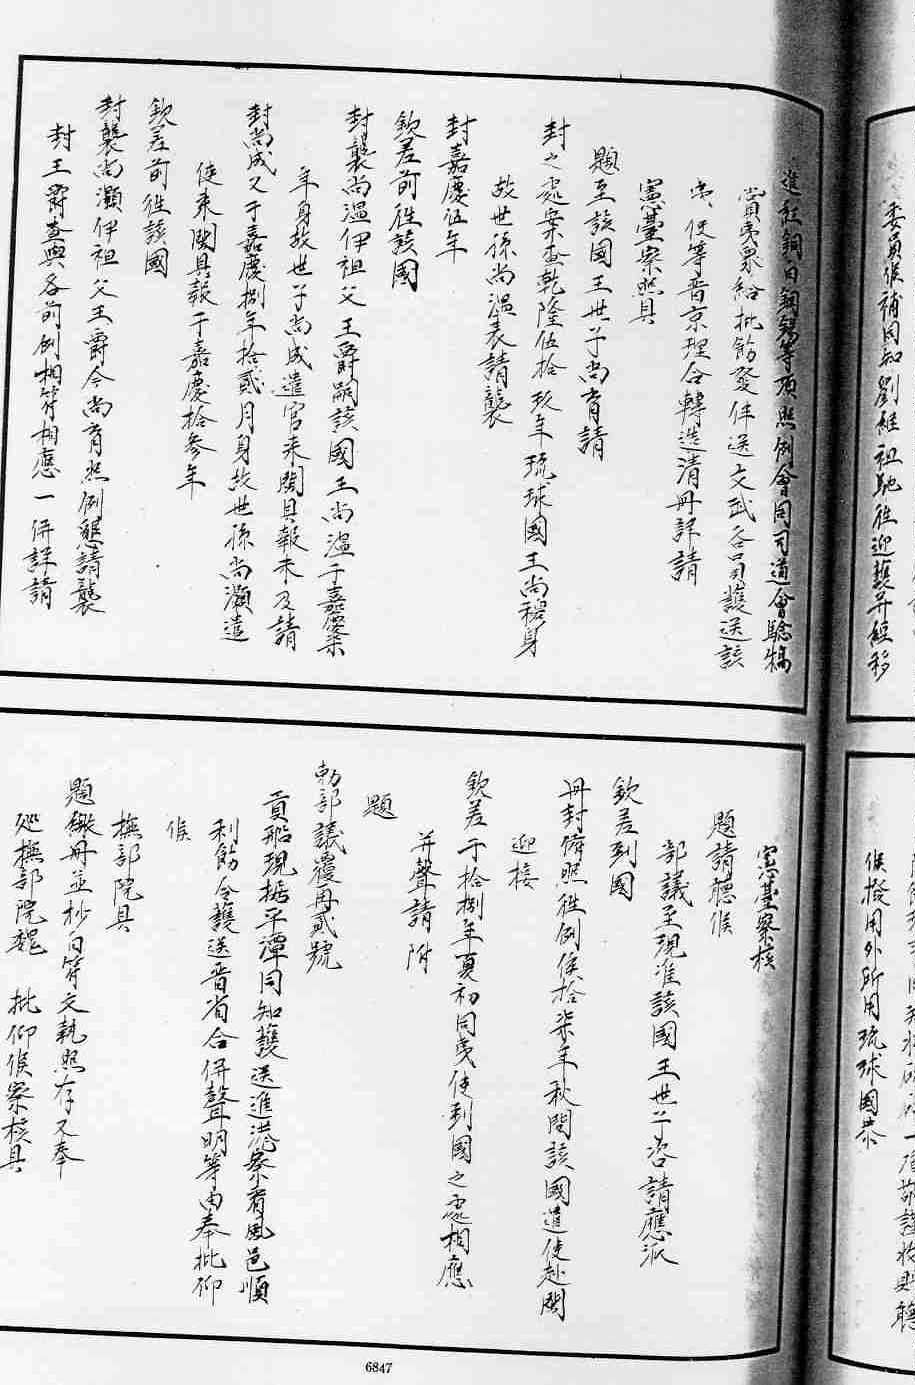 委員候補同知劉維祖馳往迎護并經移
進紅銅白鋼錫等項照例會同司道會驗犒
賞夷眾給批飭發伴送文武各員護送該
夷使等晉京理合轉造清冊詳請
憲臺察照具
題至該國王世子尚育請
封之處案查乾隆伍拾玖年琉球國王尚穆身
故世孫尚溫表請襲
封嘉慶伍年
欽差前往該國
封襲尚溫伊祖父王爵嗣該國王尚溫于嘉慶柒
年身故世子尚成遣官來閩具報未及請
封尚成又于嘉慶捌年拾貳月身故世孫尚灝遣
使來閩具報于嘉慶拾參年
欽差前往該國
封襲尚灝伊祖父王爵今尚育照例懇請襲
封王爵查與各前例相符相應一併詳請
候撥用外所用琉球國恭
憲臺察核
題請聽候
部議至現准該國王世子咨請應派
欽差到國
冊封倘照往例俟拾柒年秋間該國遣使赴閩
迎接
欽差于拾捌年夏初同夷使到國之處相應
并聲請附
題
勅部議覆再貳號
貢船現據平潭同知護送進港察看風色順
利飭令護送晉省合併聲明等由奉批仰
候
撫部院具
題繳冊並抄白符文執照存又奉
巡撫部院魏　批仰候察核具
6847